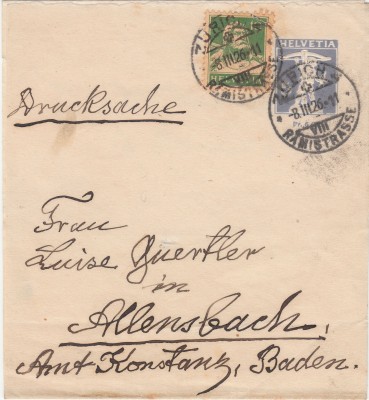 ZÜRICH
-8.III.26.-11
VIII
RÄMISTRASSE
HELVETIA
ZÜRICH
-8.III.26.-11
VIII
RÄMISTRASSE
Drucksache
Frau
Luise Quertler
in
Allensbach,
Amt Konstanz, Baden.